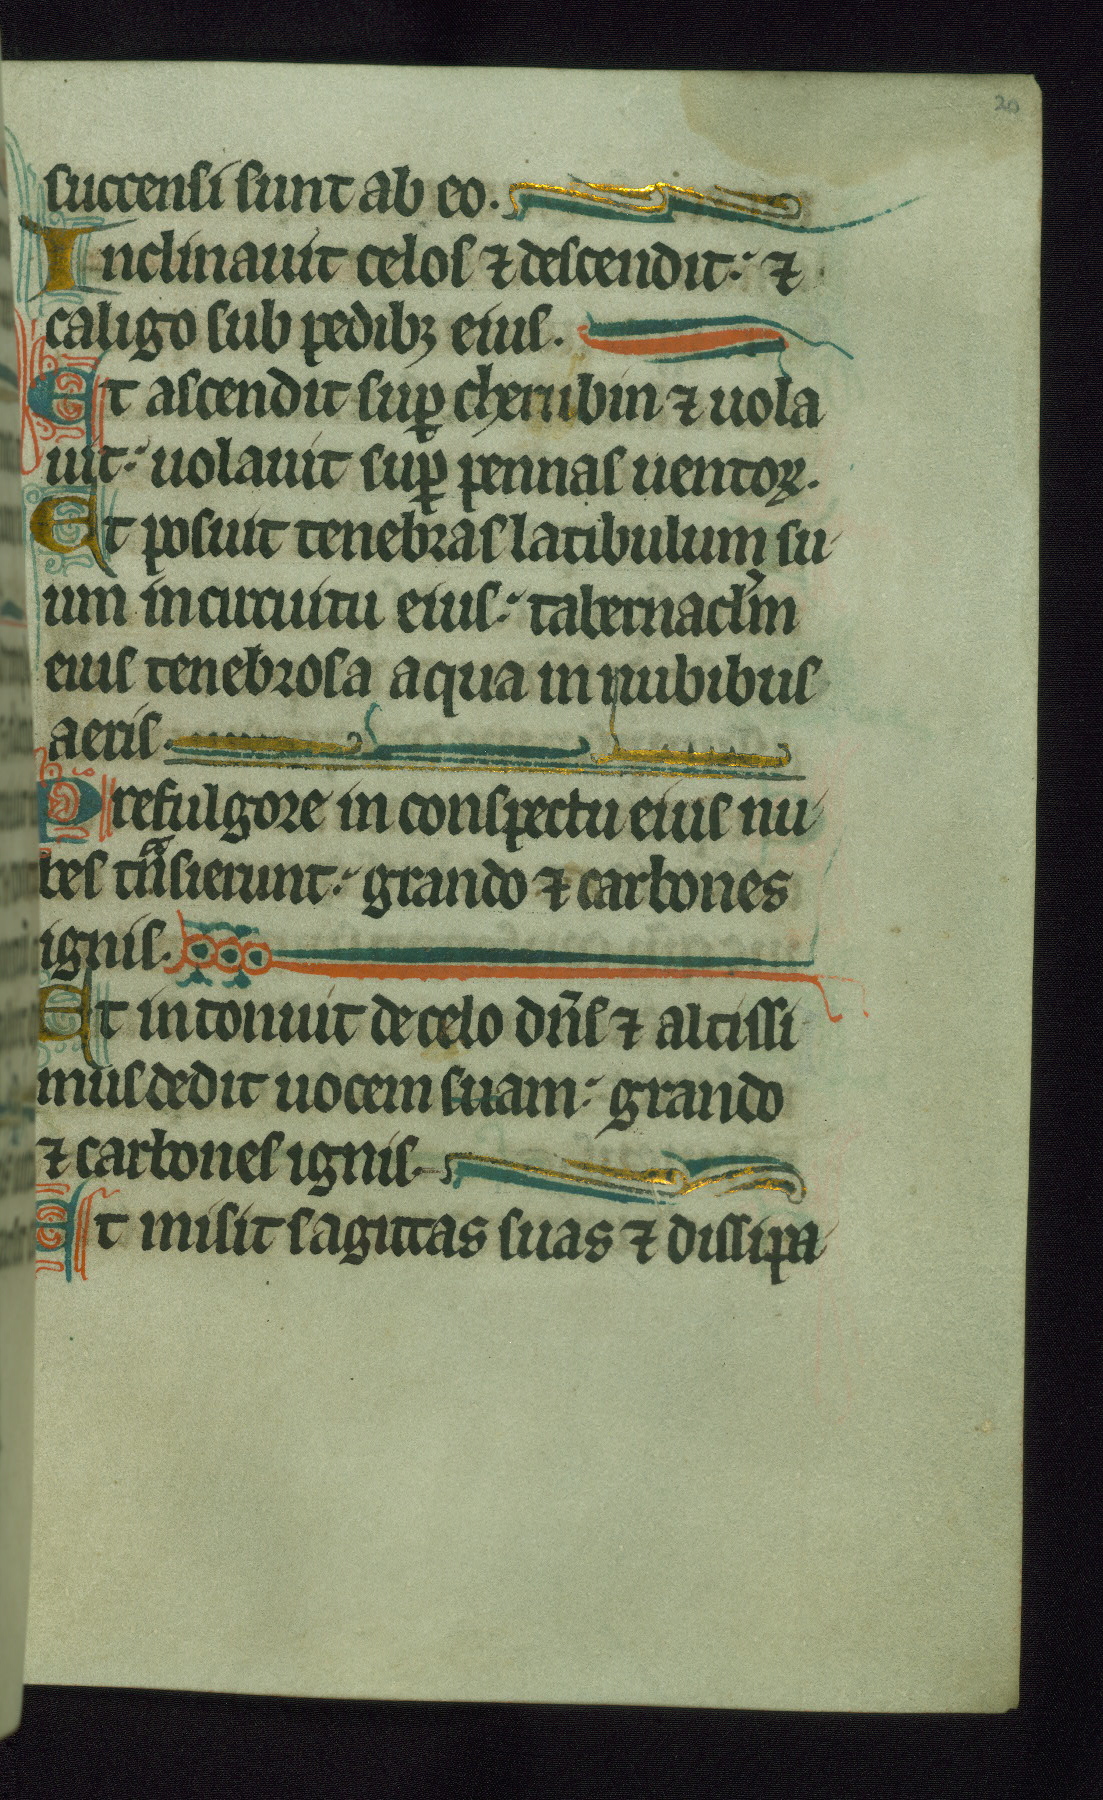 20
succensi sunt ab eo.
Inclinauit celos ⁊ descendit: ⁊
caligo sub pedibꝫ eius.
Et ascendit suꝑ cherubin ⁊ uola
uit: uolauit suꝑ pennas uentoꝝ.
Et posuit tenebras latibulum su
um in circuitu eius: tabernacl̃m
eius tenebrosa aqua in nubibus
aeris.
Prefulgore in conspectu eius nu
bes tͣnsierunt: grando ⁊ carbones
ignis.
Et intonuit de celo dñs ⁊ altissi
mus dedit uocem suam: grando
⁊ carbones ignis.
Et misit sagittas suas ⁊ dissipa